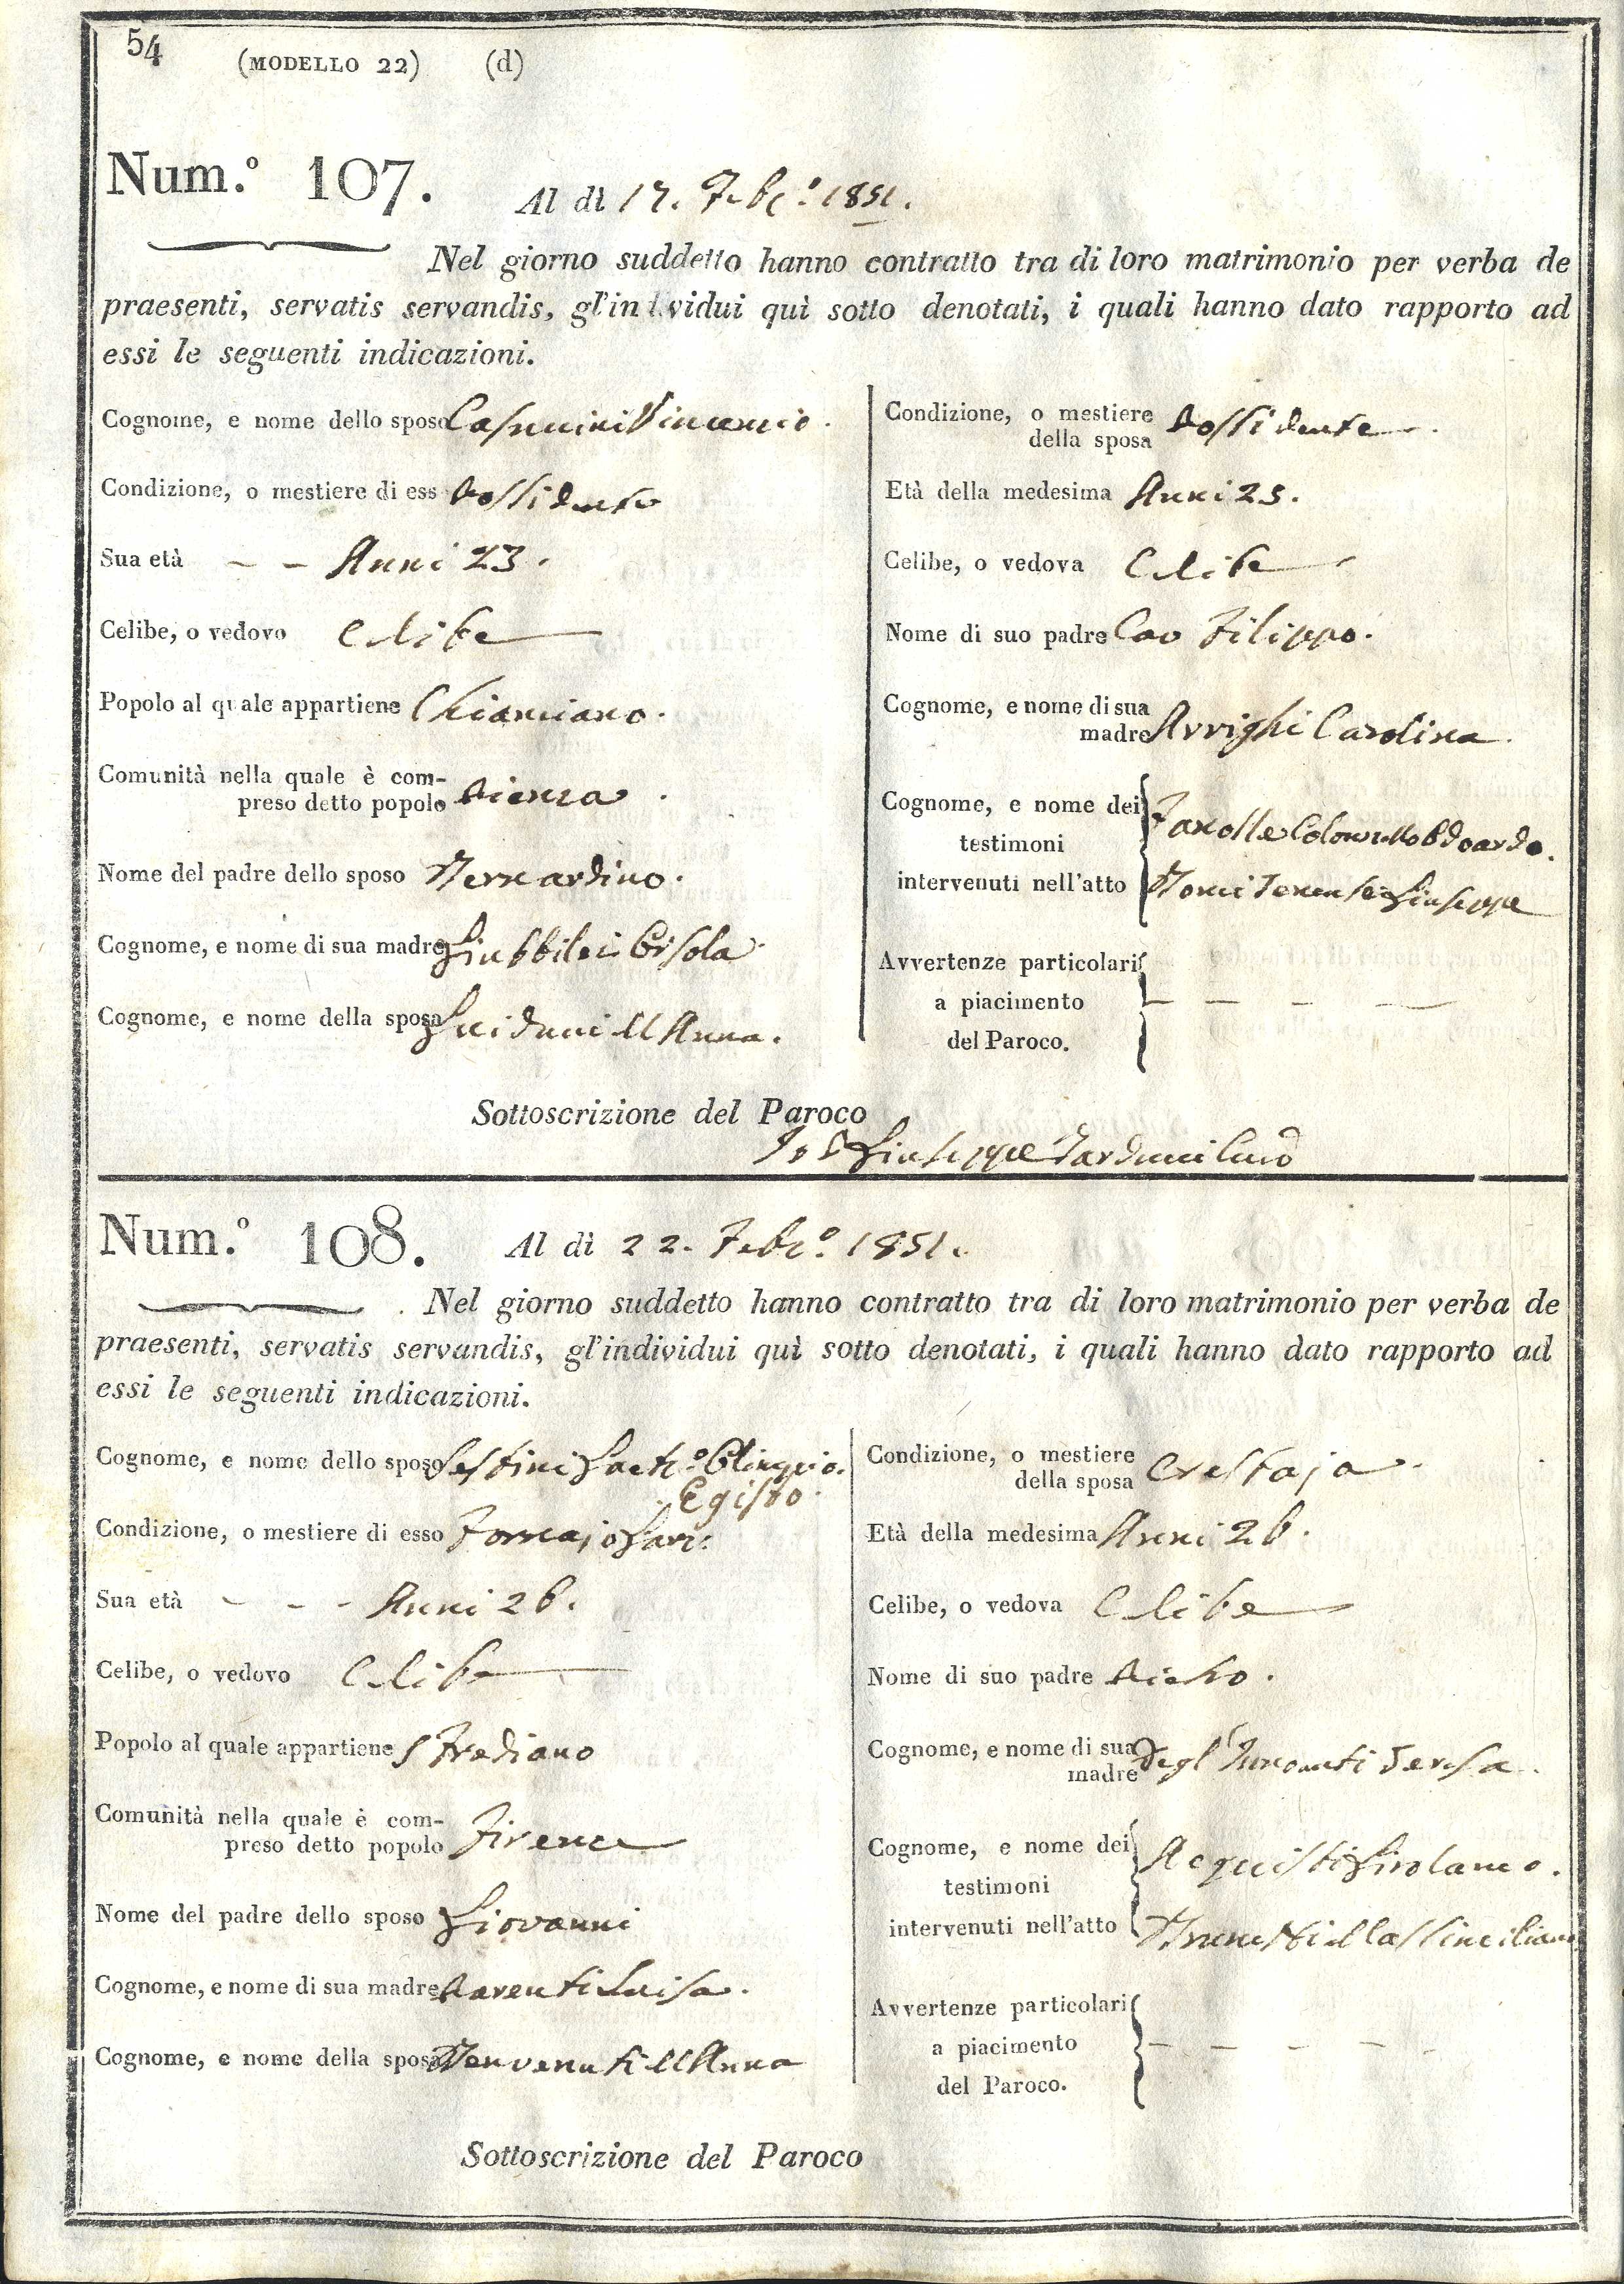 54
(MODELLO 22) (d)
Num.º 107. Al dì 17. Febº. 1851.
Nel giorno suddetto hanno contratto tra di loro matrimonio per verba de
praesenti, servatis servandis, gl'individui quì sotto denotati, i quali hanno dato rapporto ad
essi le seguenti indicazioni.
Cognome, e nome dello sposo Casuccini Vincenzio.
Condizione, o mestiere di ess Possidente
Sua età – – Anni 23.
Celibe, o vedovo Celibe
Popolo al quale appartiene Chianciano.
Comunità nella quale è com-
preso detto popolo Pienza.
Nome del padre dello sposo Bernardino.
Cognome, e nome di sua madre Giubbilei Ersola
Cognome, e nome della sposa Guiducci M Anna.
Condizione, o mestiere
della sposa Possidente.
Età della medesima Anni 25.
Celibe, o vedova Celibe
Nome di suo padre Cav Filippo.
Cognome, e nome di sua
madre Arrighi Carolina.
Cognome, e nome dei
testimoni
intervenuti nell'atto
Colonnello Edoardo.
Giuseppe
Avvertenze particolari
a piacimento
del Paroco.
– – – –
Sottoscrizione del Paroco
Io P Giuseppe Tarducci Curº
Num.º 108. Al dì 22. Febº. 1851.
Nel giorno suddetto hanno contratto tra di loro matrimonio per verba de
praesenti, servatis servandis, gl'individui quì sotto denotati, i quali hanno dato rapporto ad
essi le seguenti indicazioni.
Cognome, e nome dello sposo Sestini Gaetº
Egisto.
Condizione, o mestiere di esso Fornajo
Sua età – – – Anni 26.
Celibe, o vedovo Celibe
Popolo al quale appartiene S Frediano
Comunità nella quale è com-
preso detto popolo Firenze
Nome del padre dello sposo Giovanni
Cognome, e nome di sua madre Parenti Luisa.
Cognome, e nome della sposa Benvenuti M Anna
Condizione, o mestiere
della sposa Crestaja.
Età della medesima Anni 26.
Celibe, o vedova Celibe
Nome di suo padre Pietro.
Cognome, e nome di sua
madre Degl'Innocenti Teresa.
Cognome, e nome dei
testimoni
intervenuti nell'atto
Acquisti Girolamo.
Brunetti Massimiliano
Avvertenze particolari
a piacimento
del Paroco.
– – – – –
Sottoscrizione del Paroco